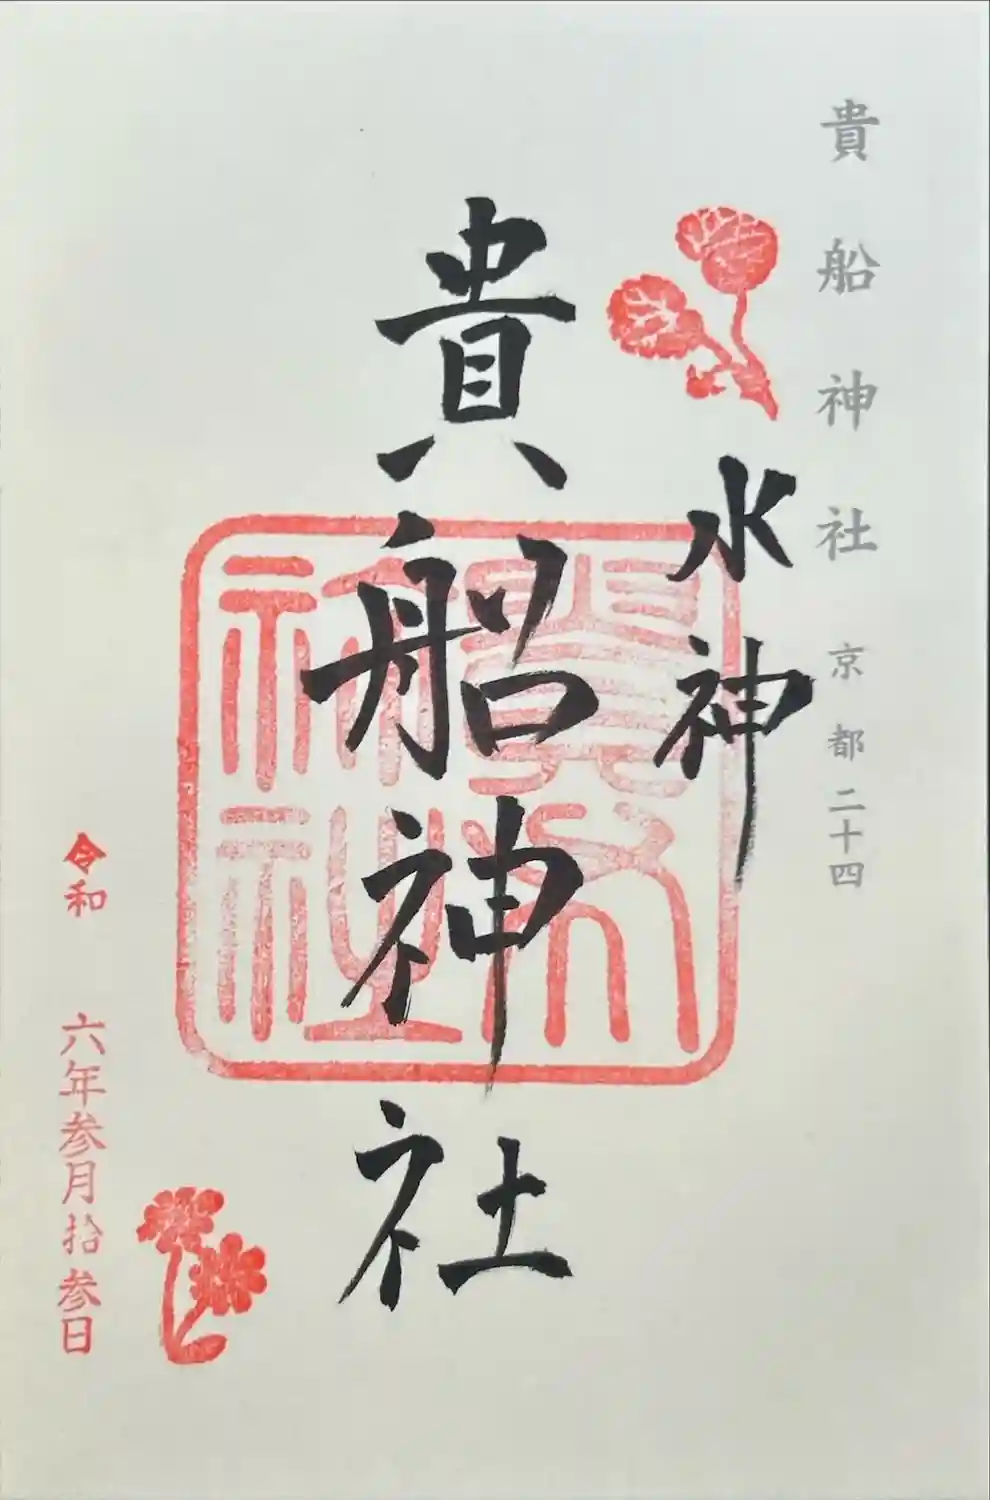 貴船神社 京都二十四
水神
貴船神社
貴布祢神社
令和 六年参月拾参日